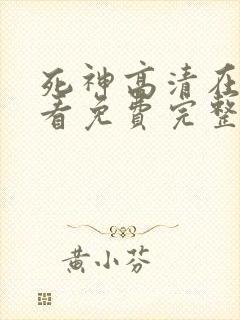 死神高清在
看免费完整
黄小芬